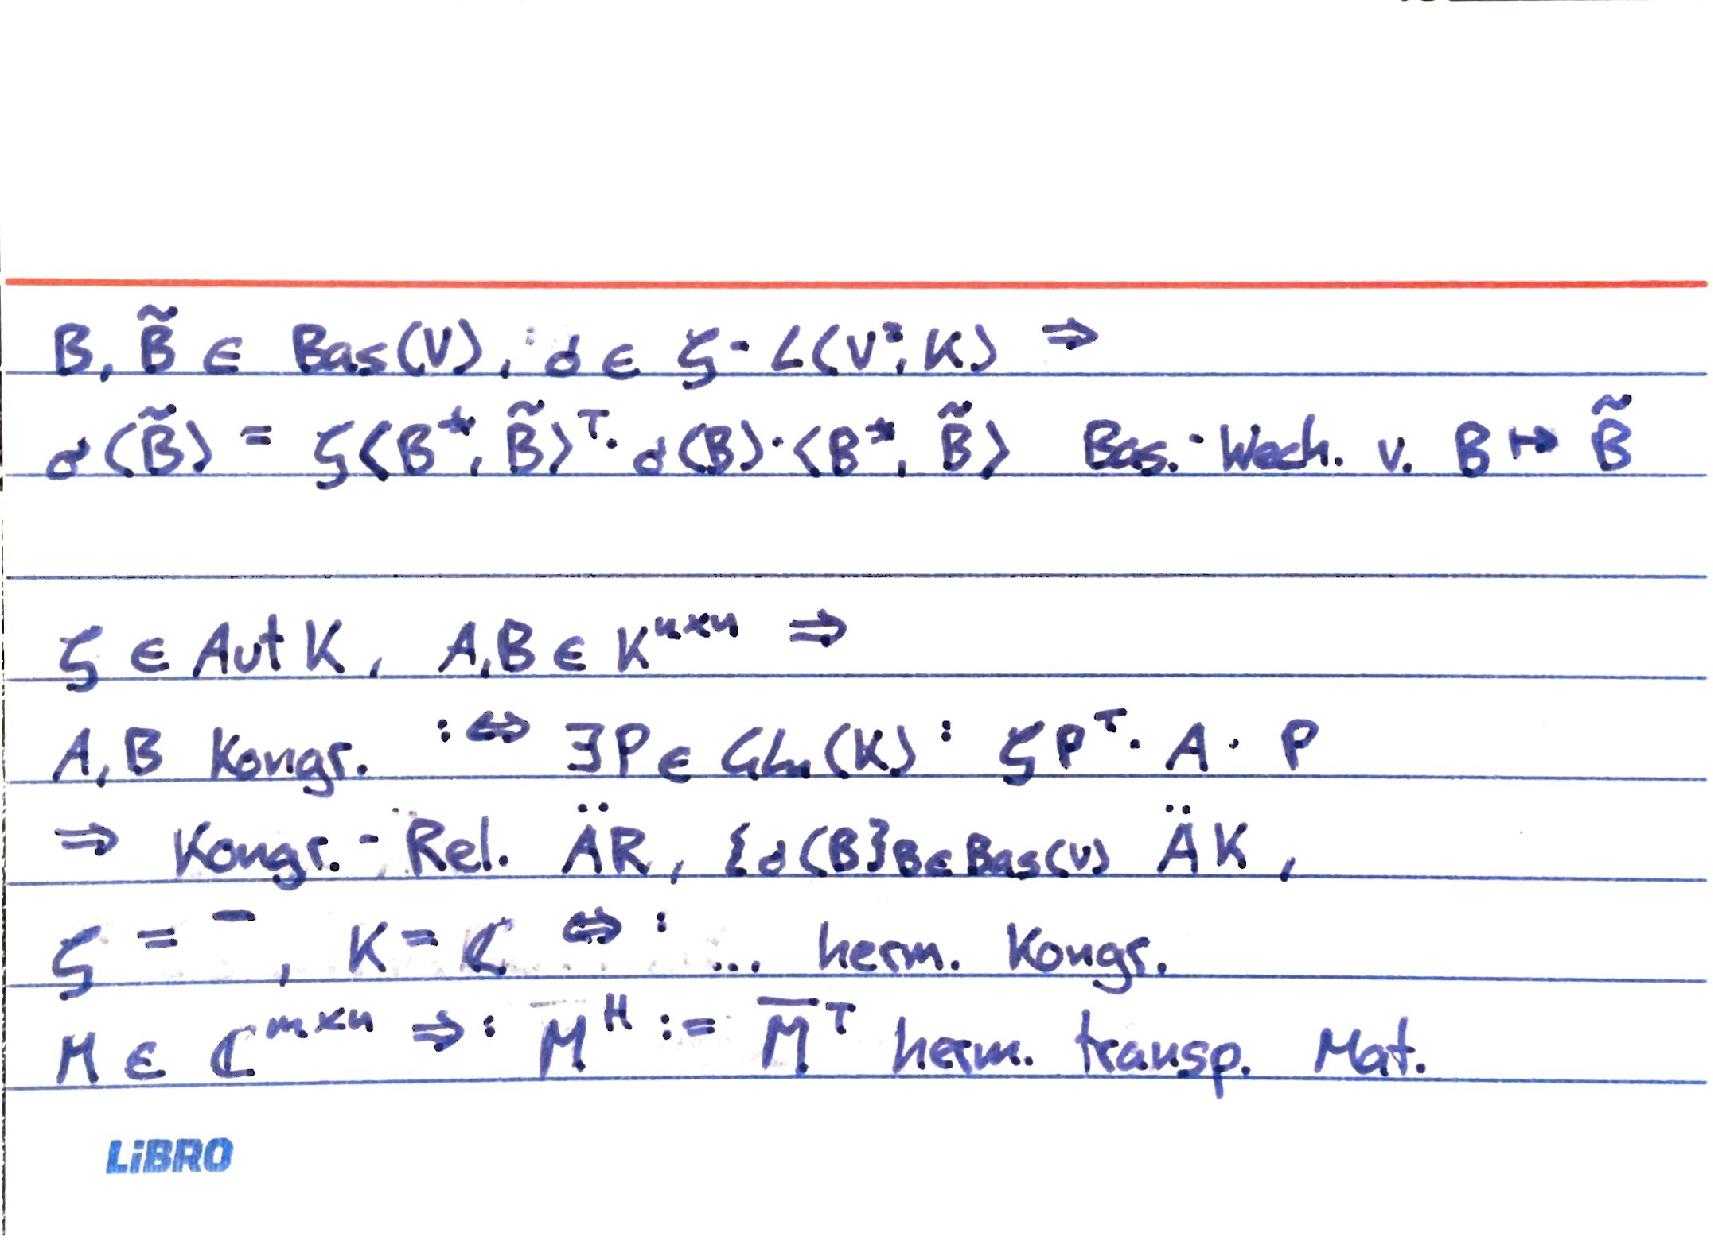 B, B̃ ∈ Bas(V), σ ∈ ζ-L(V², K) ⇒
σ(B̃) = ζ⟨B*, B̃⟩ᵀ · σ(B) · ⟨B*, B̃⟩ Bas.-Wech. v. B ↦ B̃
ζ ∈ Aut K, A,B ∈ Kⁿˣⁿ ⇒
A,B Kongr. :⇔ ∃P ∈ GLn(K): ζPᵀ · A · P
⇒ Kongr.-Rel. ÄR, {σ(B)}B∈Bas(V) ÄK,
ζ = ‾, K = ℂ ⇔: ... herm. Kongr.
M ∈ ℂᵐˣⁿ ⇒: Mᴴ := M̅ᵀ herm. transp. Mat.
LiBRO